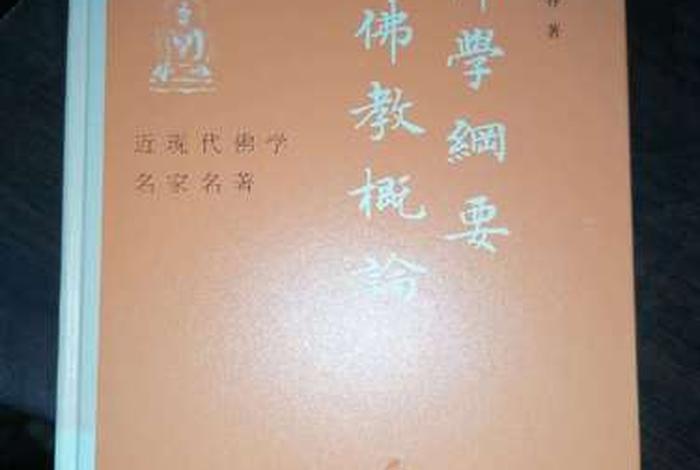 著
學綱要
佛教概論
近现代佛学
名家名著